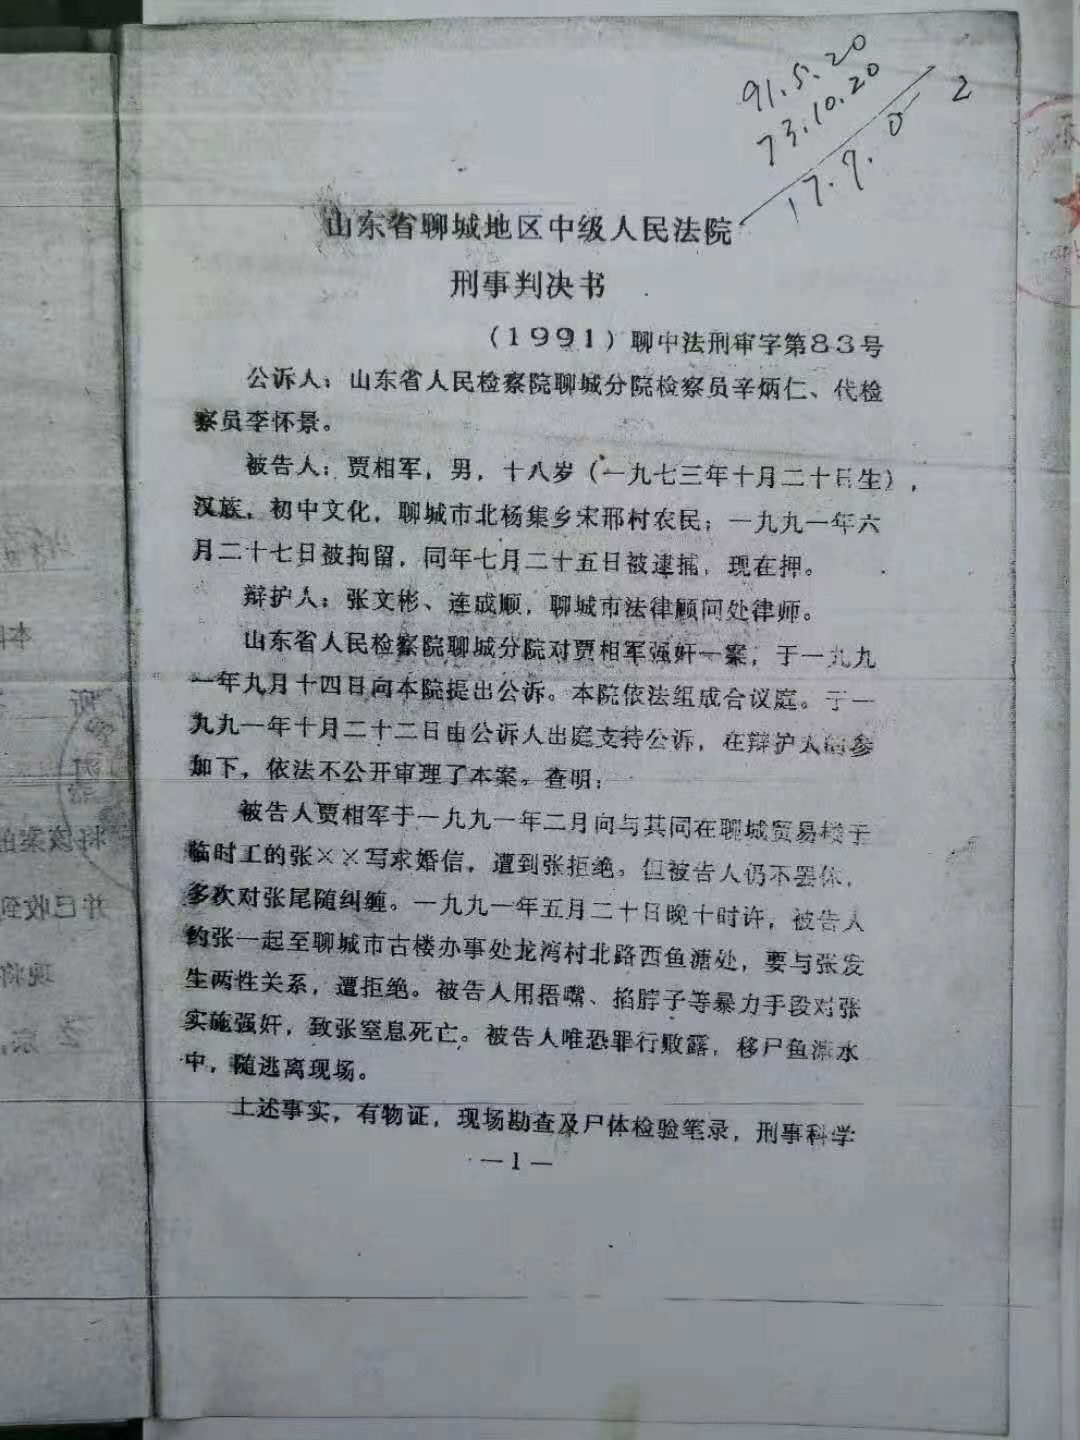 91.5.20
73.10.20
17.7.0
2
山东省聊城地区中级人民法院
刑事判决书
(1991)聊中法刑审字第83号
公诉人：山东省人民检察院聊城分院检察员辛炳仁、代检
察员李怀景。
被告人：贾相军，男，十八岁（一九七三年十月二十日生），
汉族，初中文化，聊城市北杨集乡宋邢村农民；一九九一年六
月二十七日被拘留，同年七月二十五日被逮捕，现在押。
辩护人：张文彬、连成顺，聊城市法律顾问处律师。
山东省人民检察院聊城分院对贾相军强奸一案，于一九九
一年九月十四日向本院提出公诉。本院依法组成合议庭。于一
九九一年十月二十二日由公诉人出庭支持公诉，在辩护人的参
加下，依法不公开审理了本案。查明：
被告人贾相军于一九九一年二月向与其同在聊城贸易楼干
临时工的张××写求婚信，遭到张拒绝。但被告人仍不罢休，
多次对张尾随纠缠。一九九一年五月二十日晚十时许，被告人
约张一起至聊城市古楼办事处龙湾村北路西鱼溏处，要与张发
生两性关系，遭拒绝。被告人用捂嘴、掐脖子等暴力手段对张
实施强奸，致张窒息死亡。被告人唯恐罪行败露，移尸鱼溏水
中，随逃离现场。
上述事实，有物证，现场勘查及尸体检验笔录，刑事科学
—1—